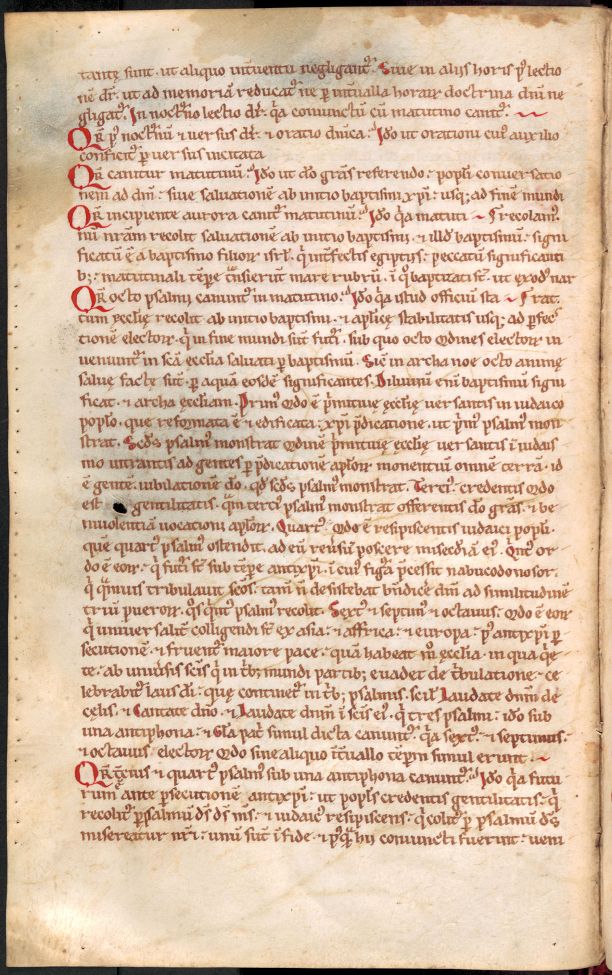 tantę sunt · ut aliquo int̄uentu negligant᷑. Siue in alijs horis p̄ lectio
nē dr̄ · ut ad memoriā reducat᷑ ne ꝑ int̄ualla horaꝝ doctrina dn̄i ne
gligat᷑. In noct̄no lectio dr̄ · q̄a conuinctū cū matutino cantt᷑.
QR̄ p᷒ noct̄nū & uersus dr̄ · & oratio dn̄ica · Iđo ut orationi cui᷒ auxilio
conficit᷑ ꝑ uersus incitata
QR̄ canitur matutinū · Iđo ut đo gr̄as referendo · popl̄i conuersatio
nem ad dn̄i · siue saluationē ab initio baptismi xp̄i · usq; ad finē mundi
QR̄ incipiente aurora cantt᷑ matutinū · Iđo q̄a matuti recolam᷒.
nū nr̄am recolit saluationē ab initio baptismi · & illđ baptismū · signi
ficatū ē a baptismo filioꝝ isrl̄ · q̄ int̄fectis egiptijs · peccatū significanti
b; · matutinali tēpe t̄nsierunt mare rubrū · ī q᷒ baptizati st̄ · ut exođ nar
QR̄ octo psalmi canunt᷑ in matutino · Iđo q̄a istud officiū sta rat.
tum ęcclię recolit ab initio baptismi · & aplīcę stabilitatis usq; ad ꝑfec
tionē electoꝝ · q̄ in fine mundi sūt fut᷒i · sub quo octo ordines electoꝝ in
ueniunt᷑ in scā ecclīa saluati ꝑ baptismū · Sic̄ in archa noe octo animę
saluę factę sūt · ꝑ aquā eosdē significantes. Diluuiū eni baptismū signi
ficat · & archa ęccliam. Prim᷒ ordo ē p̄mitiuę ęcclię uersantis in iudaico
popl̄o · que reformata ē & edificata · xp̄i p̄dicatione · ut p̄m᷒ psalm᷒ mon
strat. Scđs psalm᷒ monstrat ordinē p̄mitiuę ęcclię uersantis ī iudais
mo intrantis ad gentes ꝑ p̄dicationē aploꝝ monentiū omnē terrā · id
ē gentē · iubilationē đo · qđ scđs psalm᷒ monstrat. Terci᷒ credentis ordo
est gentilitatis · quā terci᷒ psalm᷒ monstrat offerentis đo gr̄as · & be
niuolentiā uocationi aploꝝ. Quart᷒ ordo ē resipiscentis iudaici popl̄i ·
quē quart᷒ psalm᷒ ostendit · ad eū reuersū poscere misecđiā ei᷒. Qint᷒ or
do ē eoꝝ · q̄ fut᷒i st̄ sub tēpe antixp̄i · ī cui᷒ figura p̄cessit nabucodonosor ·
q̄ quāuis tribulauit scōs · tam̄ ñ desistebat bn̄dicē dn̄m ad similitudinē
triū pueroꝝ · q᷒s qint᷒ psalm᷒ recolit. Sext᷒ & septim᷒ & octauus · ordo ē eoꝝ
q̄ uniuersalit̄ colligendi st̄ ex asia · & affrica · & europa · p᷒ antixp̄i ꝑ
secutionē · & fruent᷑ maiore pace · quā habeat m᷒ ęcclīa · in qua q̄e
te · ab uniūsis scīs q̄ in t̄b; mundi partib; euadet de t̄bulatione · ce
lebrabit᷑ laus dī · quę continet᷑ in t̄b; psalmis · scil̄ Laudate dnm̄ de
cęlis · & Cantate dn̄o · & Laudate dnm̄ ī scīs ei᷒ · q̄ tres psalmi · iđo sub
una antiphona · & Glā pat̄ simul dicta canunt᷑ · q̄a sext᷒ · & septimus ·
& octauus · electoꝝ ordo sine aliquo īt̄uallo tēpꝝ simul erunt
QR̄ t̄cius & quart᷒ psalm᷒ sub una antiphona canunt᷑ · Iđo q̄a futu
rum᷒ ante ꝑsecutionē antixp̄i · ut popl̄s credentis gentilitatis · q̄
recolit᷑ ꝑ psalmū d̄s d̄s m̄s · & iudaic᷒ resipiscens · q̄ colit᷑ ꝑ psalmū d̄s
misereatur nr̄i · unū sūt ī fide · & p᷒q̄ hij coniuncti fuerint · ueni